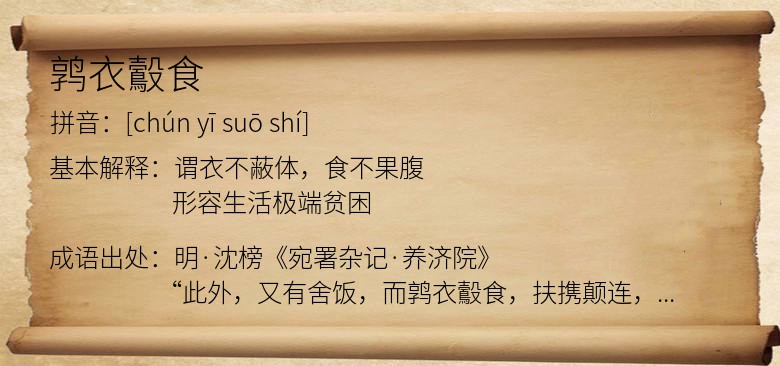 鹑衣鷇食
拼音：[chún yī suō shí]
基本解释：谓衣不蔽体，食不果腹
形容生活极端贫困
成语出处：明·沈榜《宛署杂记·养济院》
“此外，又有舍饭，而鹑衣鷇食，扶携颠连，...